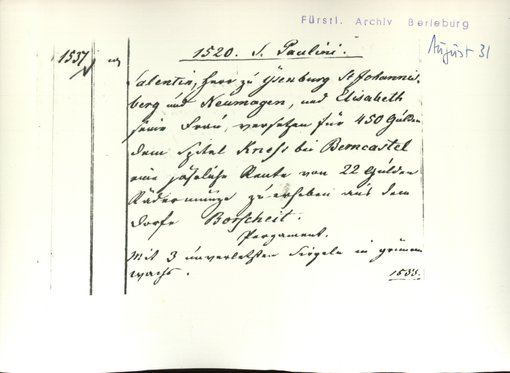 Fürstl. Archiv Berleburg
August 31
1537
1520. S. Paulini.
Valentin, Herr zu Ysenburg St Johannis-
berg und Neumagen, und Elisabeth
seine Frau, versetzen für 450 Gulden
dem Spital Kneß bei Berncastel
eine jährliche Rente von 22 Gulden
Rädermünze zu erheben aus dem
Dorfe Borscheit.
Pergament.
Mit 3 unverletzten Siegeln in grünem
Wachs.
1533.